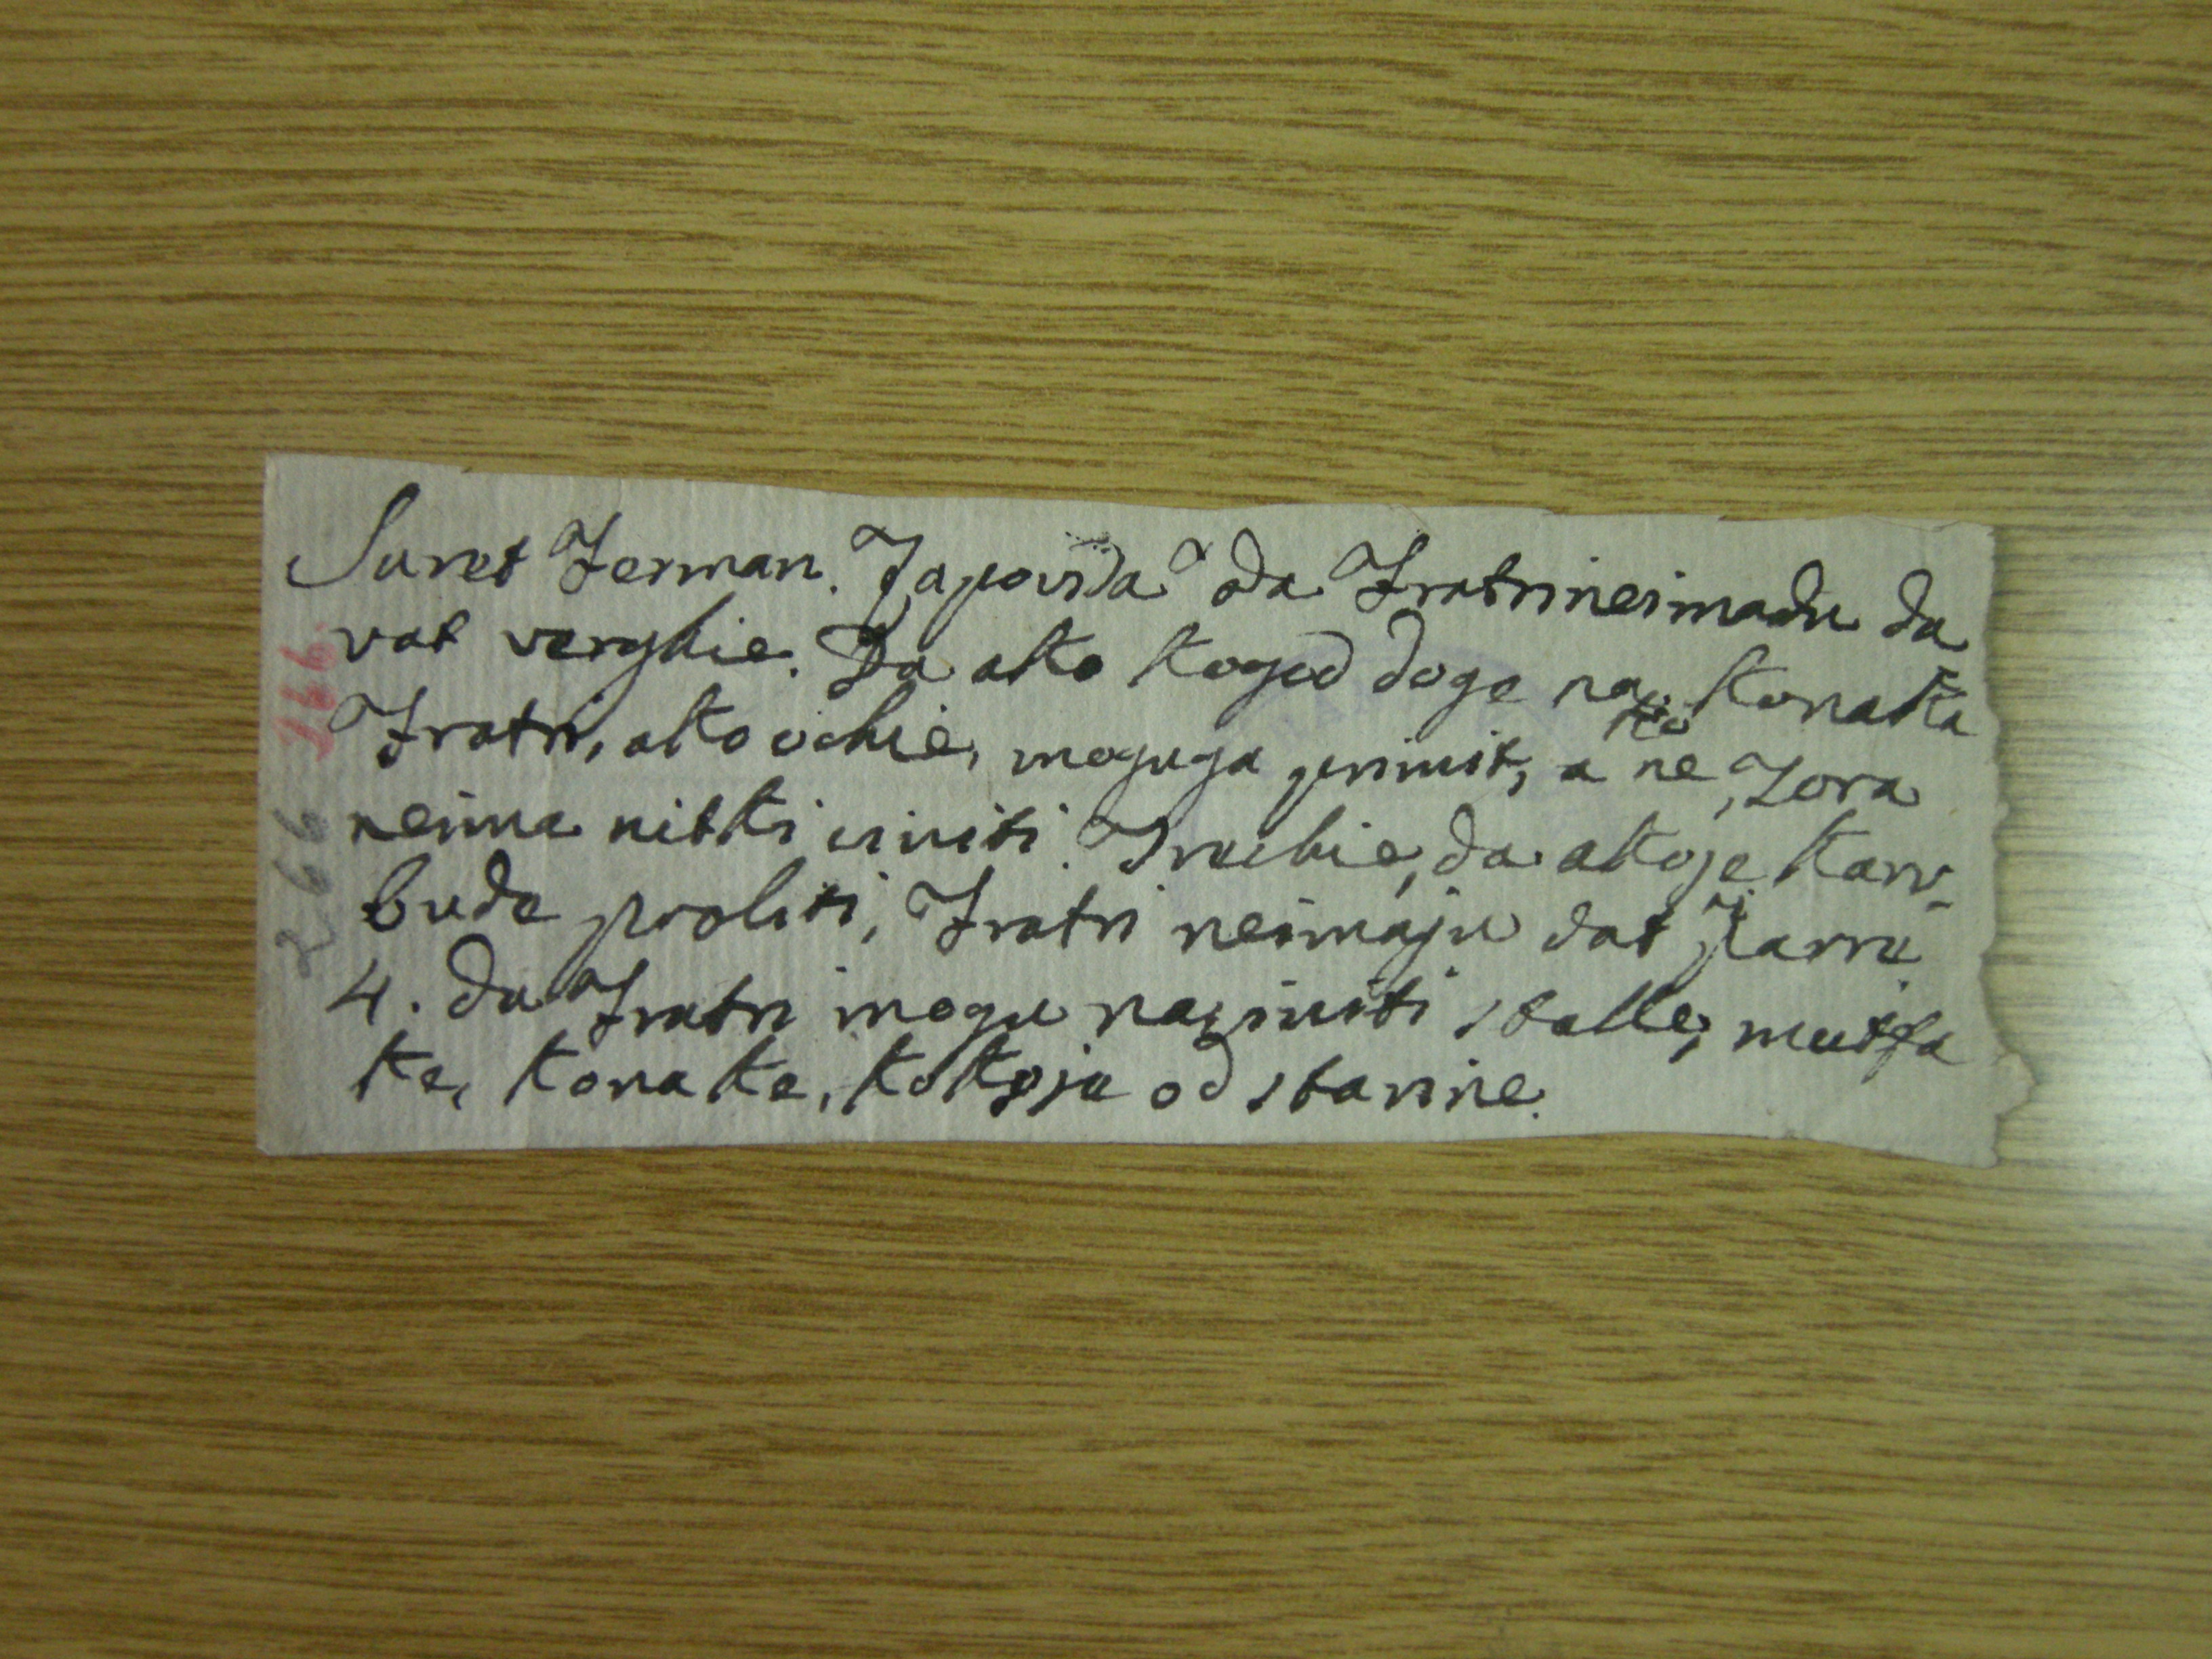 Suret Ferman. Zapovida da Fratri neimadu da
vat verghie. Da ako kogod doge na konaka
Fratri, ako ochie, moguga primit, a ne kio, Zora
neima nitki uiniti. Trechie, da akoje karv
buda proliti, Fratri neimaju dat Jarru
4. da Fratri mogu naciniti stalle, mutfa
ke, konake, kokoja od starine.
166
266